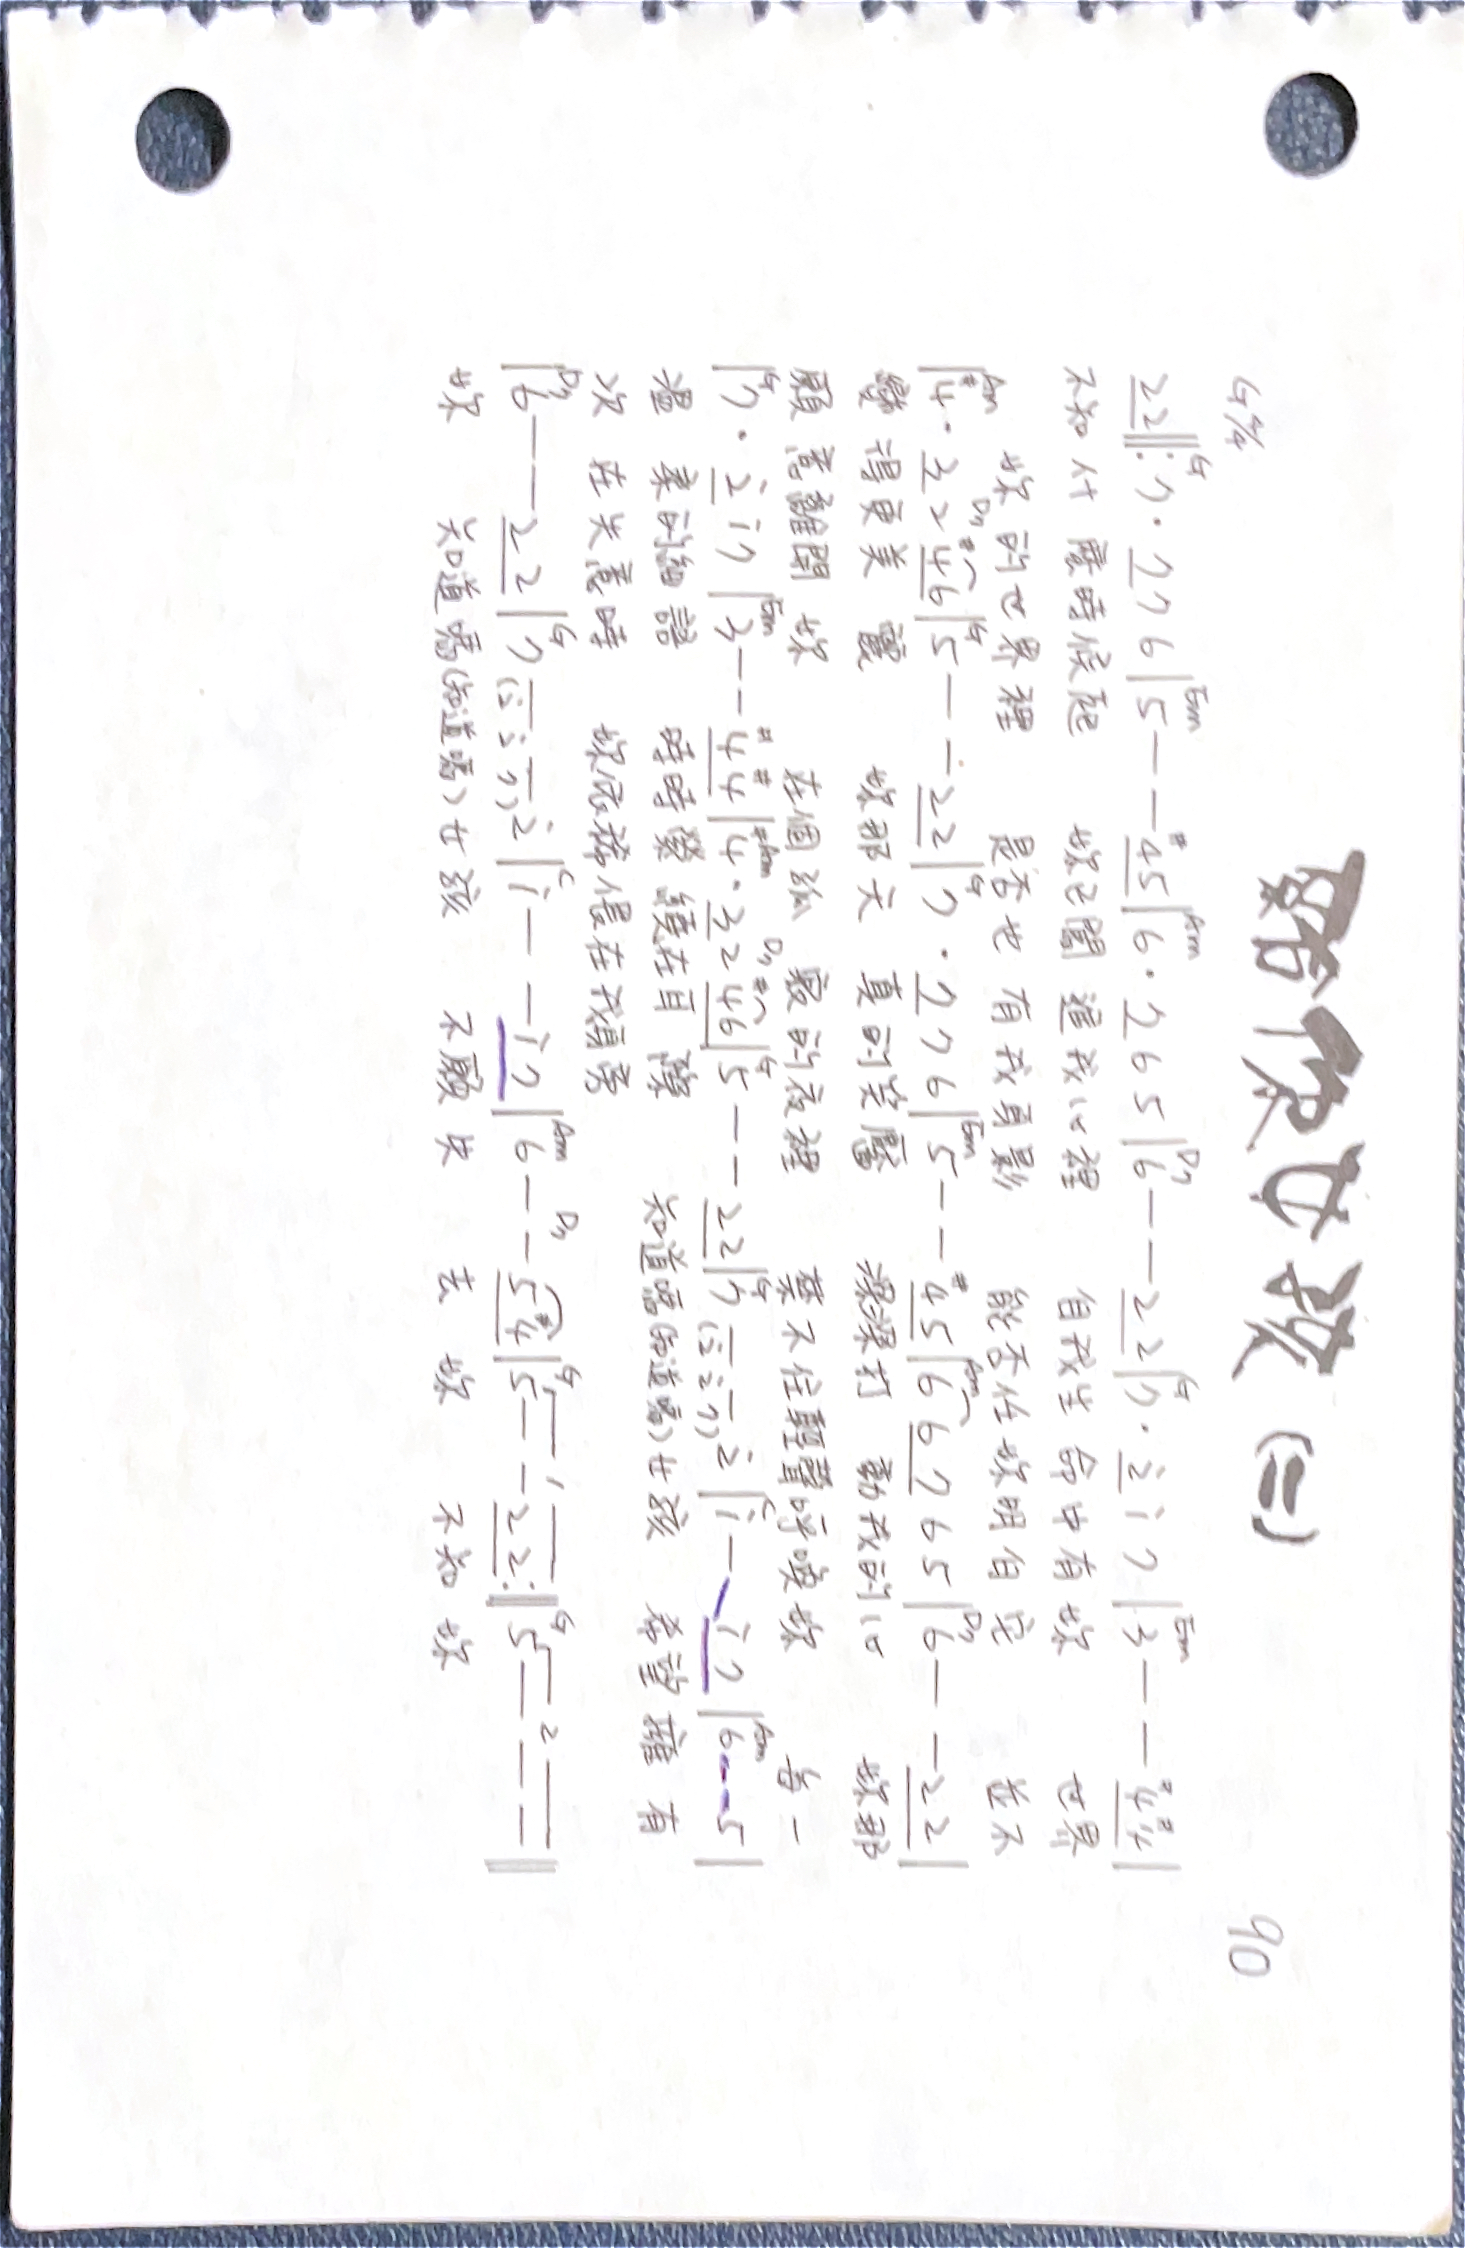 給你女孩(二)
90
G 4/4
G Em Am D7 G Em
22‖:7·776|5--#45|6·765|6--22|7·2̇1̇7|3--#4#4|
不知什麼時候起 妳已闖進我心裡 自我生命中有妳 世界
妳的世界裡 是否也有我身影 能否任妳明白它 並不
Am D7 G G Em Am D7
|#4·32#46|5--22|7·776|5--#45|667 65|6--22|
變得更美麗 妳那天真的笑靨 深深打動我的心 妳那
願意離開妳 在個孤寂的夜裡 禁不住輕聲呼喚妳 每一
G Em Am D7 G G C Am
|7·2̇1̇7|3--#4#4|#4·32#46|5--22|7(2̇2̇7)2̇|1̇--1̇7|6--5|
溫柔的細語 時時縈繞在耳際 知道嗎(知道嗎)女孩 希望擁有
次在失意時 妳依稀偎在我身旁
D7 G C Am D7 G 1 G 2
|6--22|7(2̇2̇7)2̇|1̇--1̇7|6--5#4|5--22:‖5---‖
妳 知道嗎(知道嗎)女孩 不願失去妳 不知妳